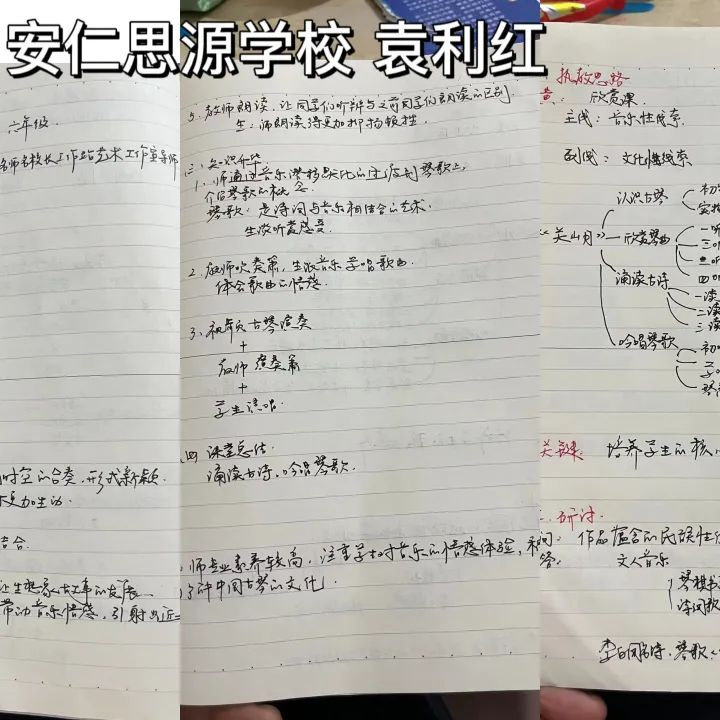 安仁思源学校 袁利红
六年级
名师名校长工作站艺术工作室导师
时空的合奏,形成新颖
更加生动.
结合.
让生想象故事的发展.
带动音乐情感,引射出近
5. 教师朗读,让同学们听辨与之前同学们朗读的区别
生:师朗读诗更加抑扬顿挫.
三、知识升华
1. 师通过音乐
介绍琴歌的概念.
琴歌:是诗词与音乐相结合的艺术.
生谈听赏感受.
2. 教师吹奏箫,生跟音乐学唱歌曲
体会歌曲的情感.
3. 视频古琴演奏
+
教师演奏箫
+
学生演唱.
四 课堂总结
诵读古诗,吟唱琴歌.
师专业素养较高,注重学对音乐的情感体验,和
了解中国古琴的文化.
执教思路
欣赏课.
主线:音乐性线索.
副线:文化性线索
认识古琴
初
《关山月》
欣赏琴曲
一听
二听
三听
四听
诵读古诗
一读
二读
三读
吟唱琴歌
初
学
琴
关键:培养学生的核心
二、研讨.
问:作品蕴含的民族性
答:文人音乐
琴棋书
诗词歌
李白同名诗.琴歌